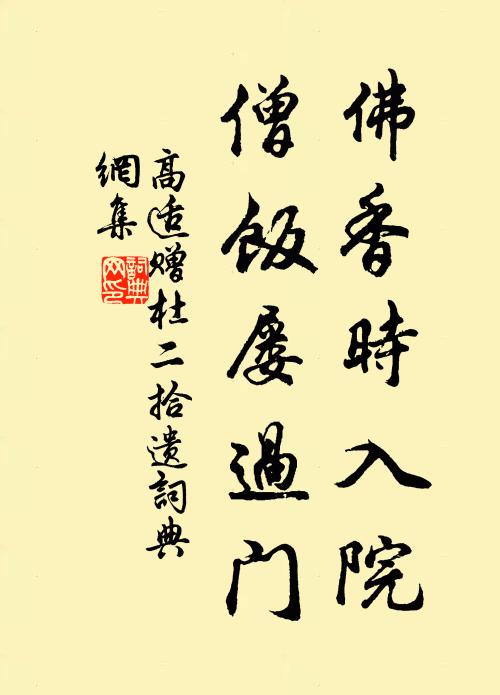 佛香時入院
僧飯屡過门
高适赠杜二拾遗詞典
網集
詞典
网印